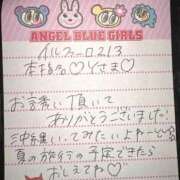 ANGEL BLUE GIRLS
イルフィーロ213
本指名♡Yさま♡
お誘い頂いて
ありがとうございました!
沖縄いってみたいよねーと
夏の旅行の予定できたら
おしえてね♡